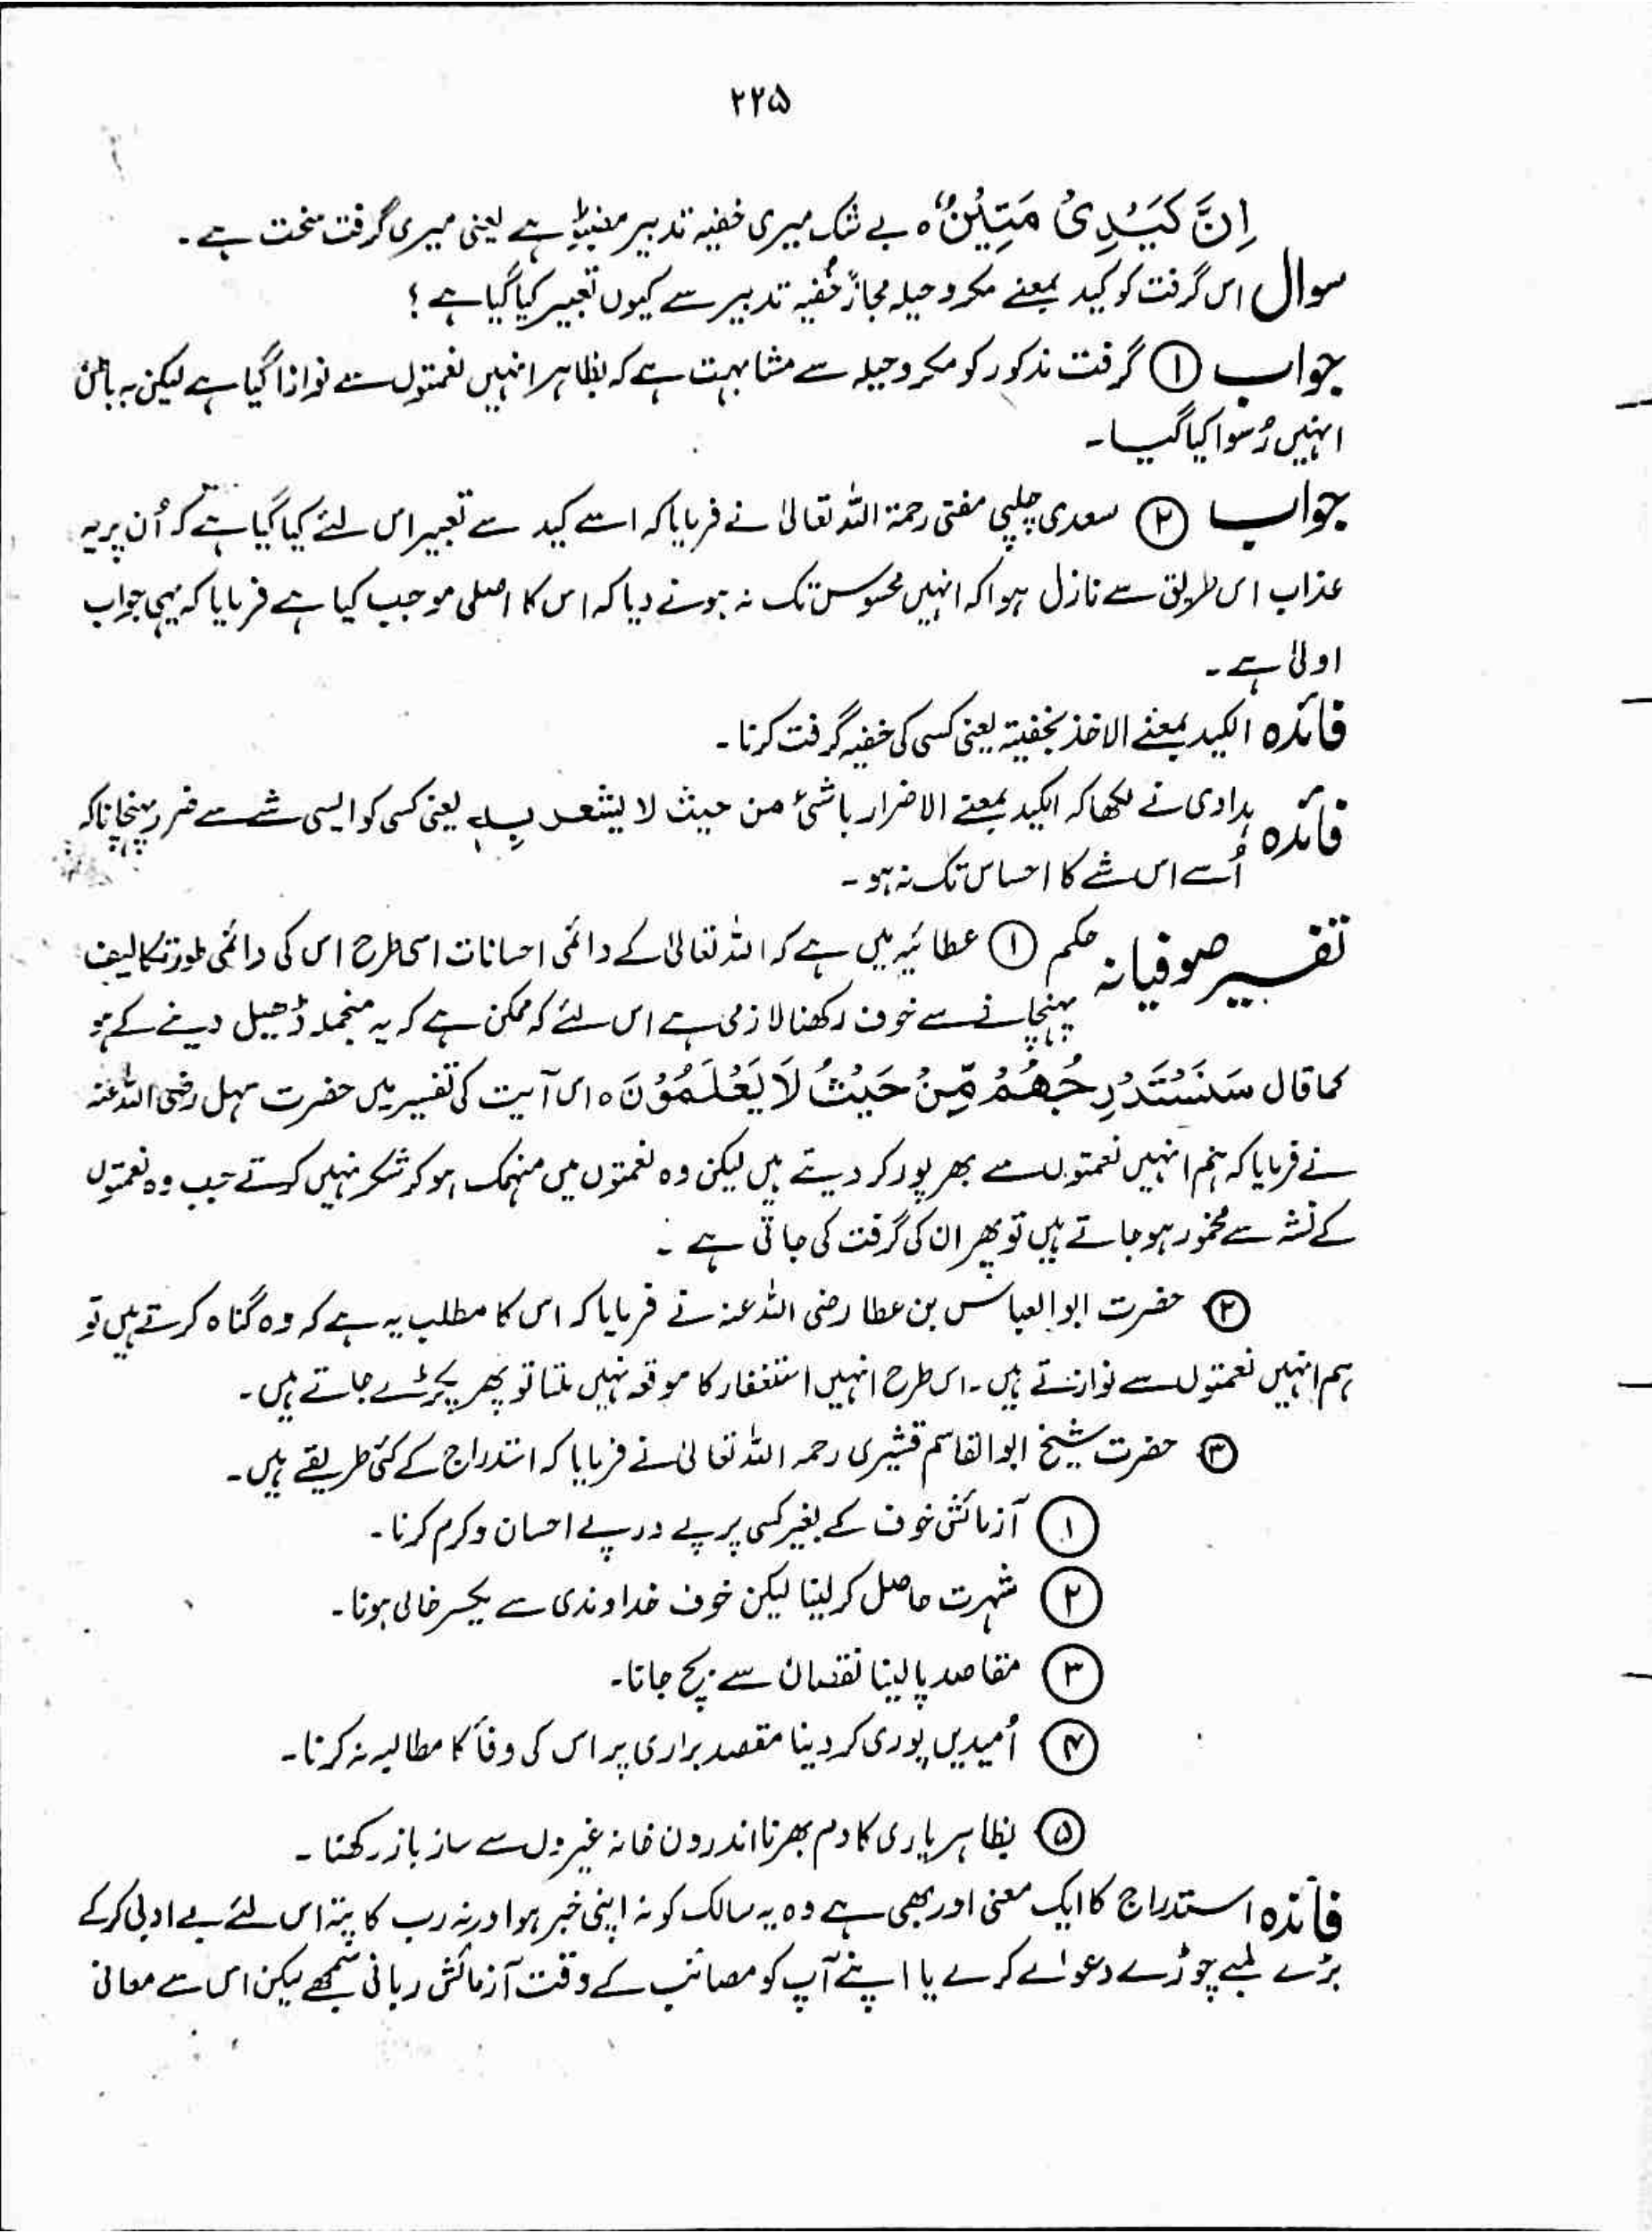 ۲۲۵
اِنَّ کَیْدِیْ مَتِیْنٌ ه بے شک میری خفیہ تدبیر مضبوط ہے یعنی میری گرفت سخت ہے ۔
سوال اس گرفت کو کید بمعنے مکر و حیلہ مجازًا خُفیہ تدبیر سے کیوں تعبیر کیا گیا ہے ؟
جواب ① گرفت مذکور کو مکر و حیلہ سے مشابہت ہے کہ بظاہر انہیں نعمتوں سے نوازا گیا ہے لیکن بہ باطن
انہیں رُسوا کیا گیا ۔
جواب ② سعدی چلپی مفتی رحمۃ اللہ تعالیٰ نے فرمایا کہ اسے کید سے تعبیر اس لئے کیا گیا ہے کہ اُن پر یہ
عذاب اس طریق سے نازل ہوا کہ انہیں محسوس تک نہ ہونے دیا کہ اس کا اصلی موجب کیا ہے فرمایا کہ یہی جواب
اولیٰ ہے ۔
فائدہ الکید بمعنے الاخذ بخفیۃ یعنی کسی کی خفیہ گرفت کرنا ۔
فائدہ بدادی نے لکھا کہ الکید بمعنے الاضرار باشیٔ من حیث لا یشعر بِہٖ یعنی کسی کو ایسی شے سے ضرر پہنچانا کہ
اُسے اس شے کا احساس تک نہ ہو ۔
تفسیر صوفیانہ حکم ① عطائیہ میں ہے کہ اللہ تعالیٰ کے دائمی احسانات اسی طرح اس کی دائمی طور تکالیف
پہنچانے سے خوف رکھنا لازمی ہے اس لئے کہ ممکن ہے کہ یہ منجملہ ڈھیل دینے کے ہو
کما قال سَنَسْتَدْرِجُهُمْ مِّنْ حَیْثُ لَا یَعْلَمُوْنَ ه اس آیت کی تفسیر میں حضرت سہل رضی اللہ عنہ
نے فرمایا کہ ہم انہیں نعمتوں سے بھرپور کر دیتے ہیں لیکن وہ نعمتوں میں منہمک ہو کر شکر نہیں کرتے جب وہ نعمتوں
کے نشہ سے مخمور ہو جاتے ہیں تو پھر ان کی گرفت کی جاتی ہے ۔
② حضرت ابوالعباس بن عطا رضی اللہ عنہ نے فرمایا کہ اس کا مطلب یہ ہے کہ وہ گناہ کرتے ہیں تو
ہم انہیں نعمتوں سے نوازتے ہیں ۔ اس طرح انہیں استغفار کا موقعہ نہیں ملتا تو پھر پکڑے جاتے ہیں ۔
③ حضرت شیخ ابوالقاسم قشیری رحمہ اللہ تعالیٰ نے فرمایا کہ استدراج کے کئی طریقے ہیں ۔
① آزمائش خوف کے بغیر کسی پر پے در پے احسان و کرم کرنا ۔
② شہرت حاصل کر لینا لیکن خوف خداوندی سے یکسر خالی ہونا ۔
③ مقاصد پا لینا نقصان سے بچ جانا ۔
④ اُمیدیں پوری کر دینا مقصد براری پر اس کی وفا کا مطالبہ نہ کرنا ۔
⑤ بظاہر یاری کا دم بھرنا اندرون خانہ غیروں سے ساز باز رکھنا ۔
فائدہ استدراج کا ایک معنی اور بھی ہے وہ یہ سالک کو نہ اپنی خبر ہو اور نہ رب کا پتہ اس لئے بے ادبی کر کے
بڑے لمبے چوڑے دعوائے کرے یا اپنے آپ کو مصائب کے وقت آزمائش ربانی سمجھے لیکن اس سے معافی